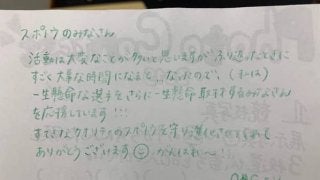 スポイクのみなさん
活動は大変なことが多いと思いますが、ふり返ったときに
すごく大事な時間になると、なったので、(私は)
一生懸命な選手をさらに一生懸命取材するみなさん
を応援しています!!!
すてきなクオリティのスポイクを
ありがとうございます がんばれ〜!